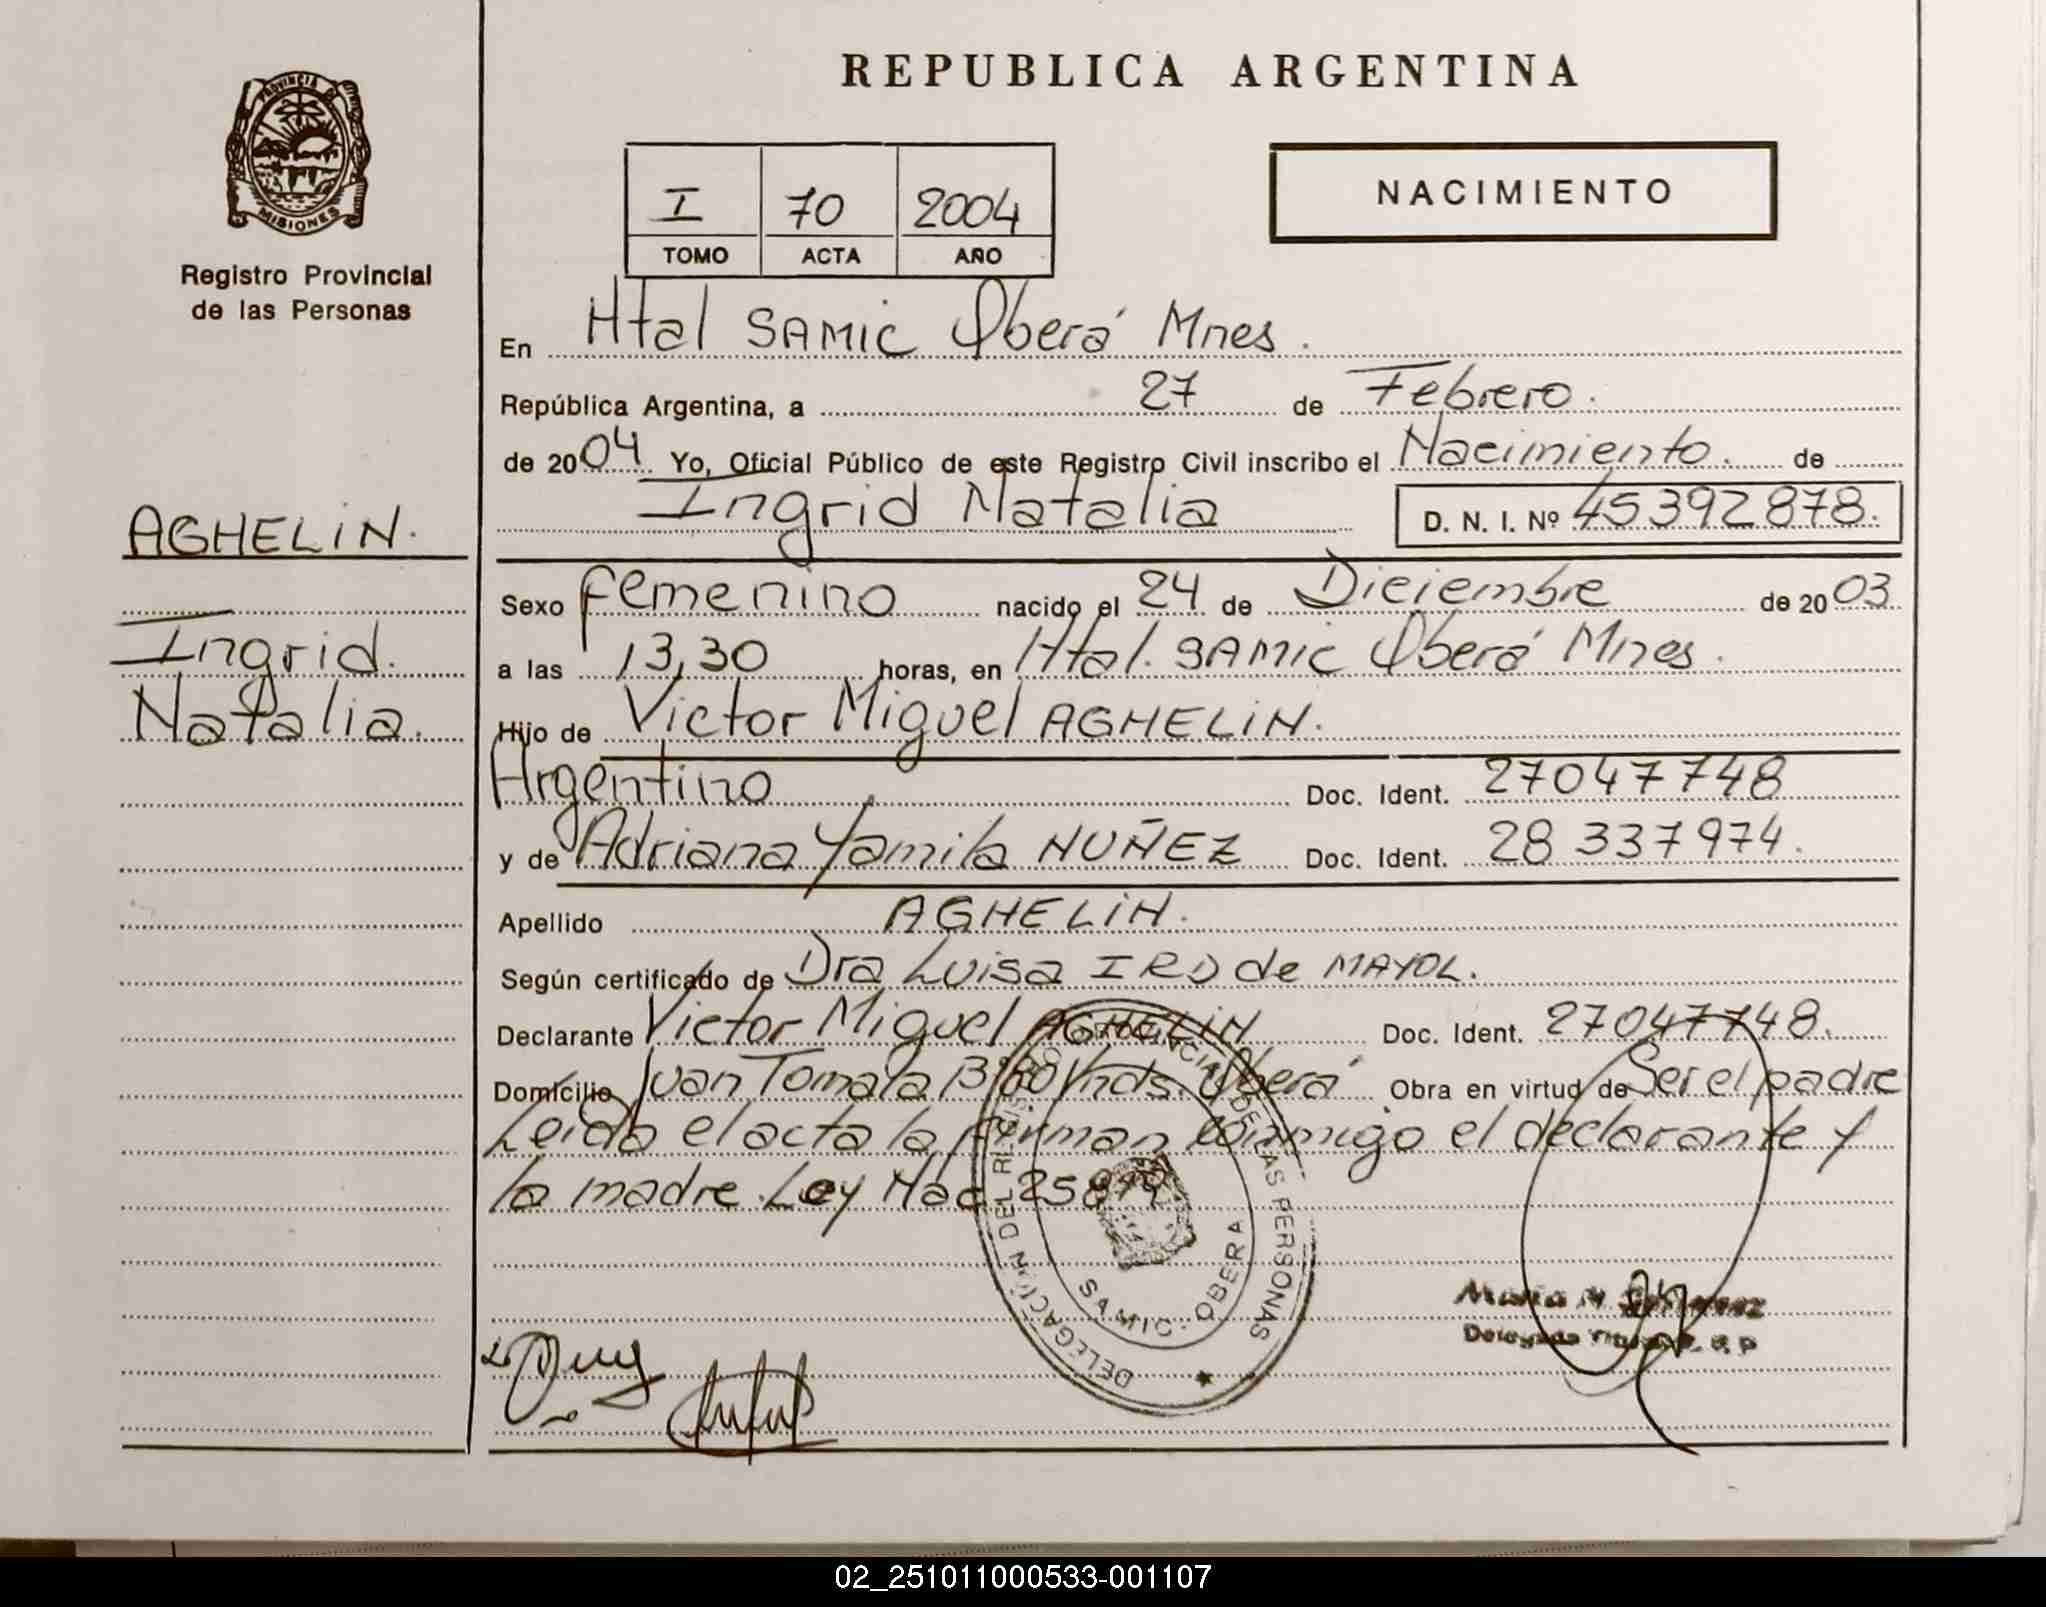 REPUBLICA ARGENTINA
PROVINCIA DE
MISIONES
Registro Provincial
de las Personas
I 70 2004
TOMO ACTA AÑO
NACIMIENTO
En Htal SAMIC Oberá Mnes.
República Argentina, a 27 de Febrero.
de 2004 Yo, Oficial Público de este Registro Civil inscribo el Nacimiento. de
Ingrid Natalia D. N. I. Nº 45392878.
AGHELIN.
Ingrid.
Natalia.
Sexo femenino nacido el 24 de Diciembre de 2003
a las 13,30 horas, en Htal. SAMIC Oberá Mnes.
Hijo de Victor Miguel AGHELIN.
Argentino Doc. Ident. 27047748
y de Adriana Yamila NUÑEZ Doc. Ident. 28 337974.
Apellido AGHELIN.
Según certificado de Dra Luisa IRD de MAYOL.
Declarante Victor Miguel AGHELIN Doc. Ident. 27047748.
Domicilio Juan Tomala Vnds. Oberá Obra en virtud de Ser el padre
Leida el acta la firman conmigo el declarante y
la madre. Ley Nac
DELEGACIÓN DEL PROVINCIAL DE LAS PERSONAS
SAMIC - OBERA
Maria
02_251011000533-001107